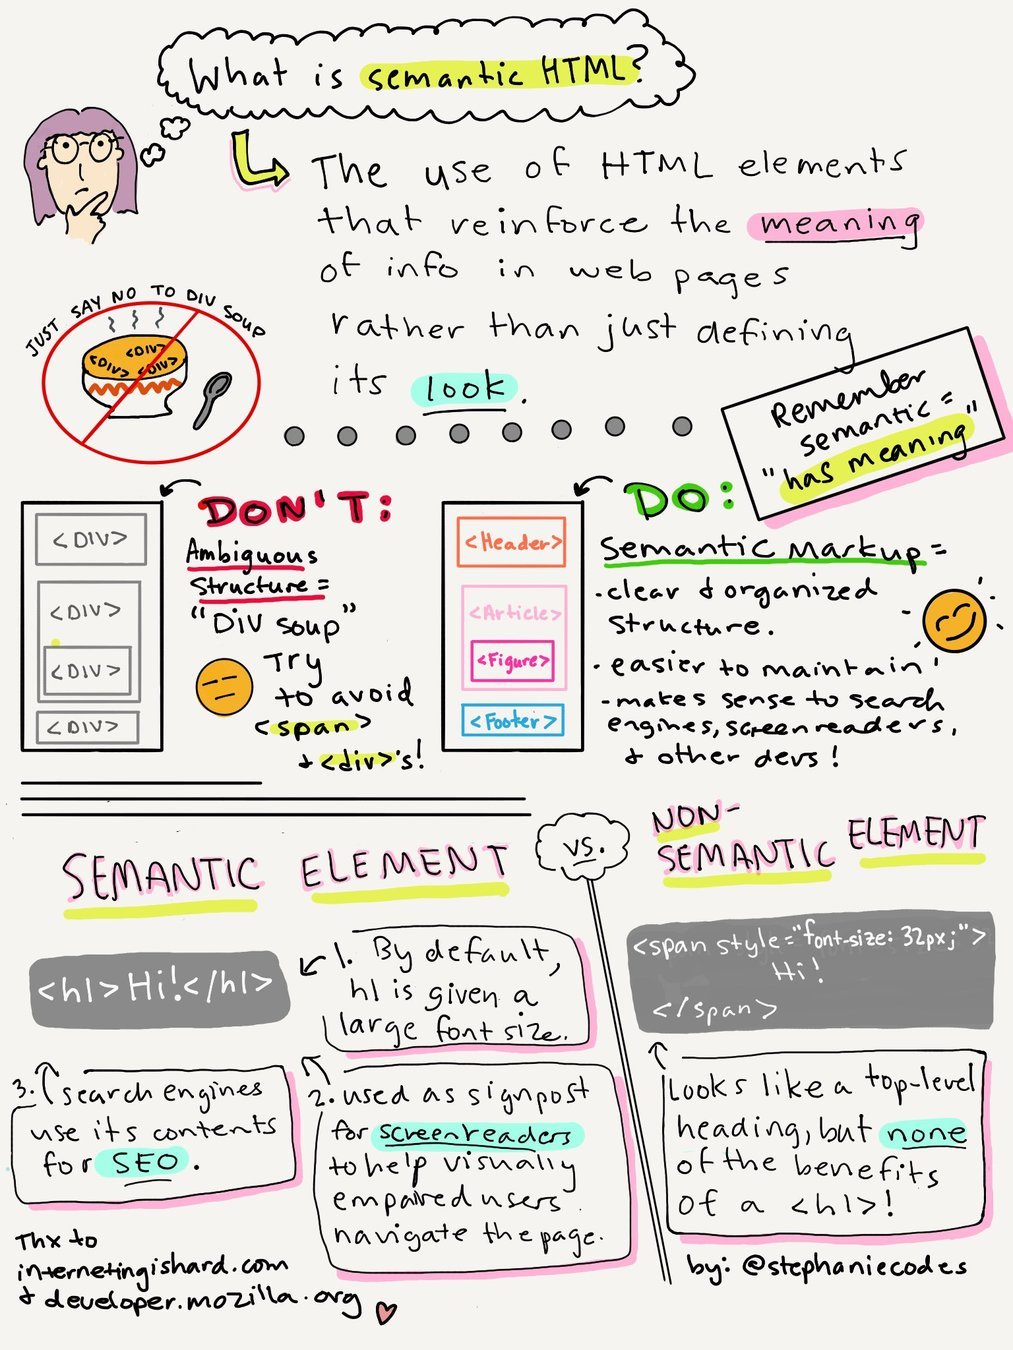 What is semantic HTML?
The use of HTML elements
that reinforce the meaning
of info in web pages
rather than just defining
its look.
JUST SAY NO TO DIV SOUP
<DIV>
<DIV> <DIV>
Remember
semantic =
"has meaning"
DON'T:
Ambiguous
structure =
"DIV soup"
Try
to avoid
<span>
& <div>'s!
<DIV>
<DIV>
<DIV>
<DIV>
DO:
<Header>
<Article>
<Figure>
<Footer>
Semantic Markup =
• clear & organized
structure.
• easier to maintain
• makes sense to search
engines, screenreaders,
& other devs!
SEMANTIC ELEMENT
vs.
NON-
SEMANTIC ELEMENT
<h1>Hi!</h1>
1. By default,
h1 is given a
large font size.
2. used as signpost
for screenreaders
to help visually
empaired users
navigate the page.
3. search engines
use its contents
for SEO.
<span style="font-size: 32px;">
Hi!
</span>
Looks like a top-level
heading, but none
of the benefits
of a <h1>!
Thx to
internetingishard.com
& developer.mozilla.org
by: @stephaniecodes